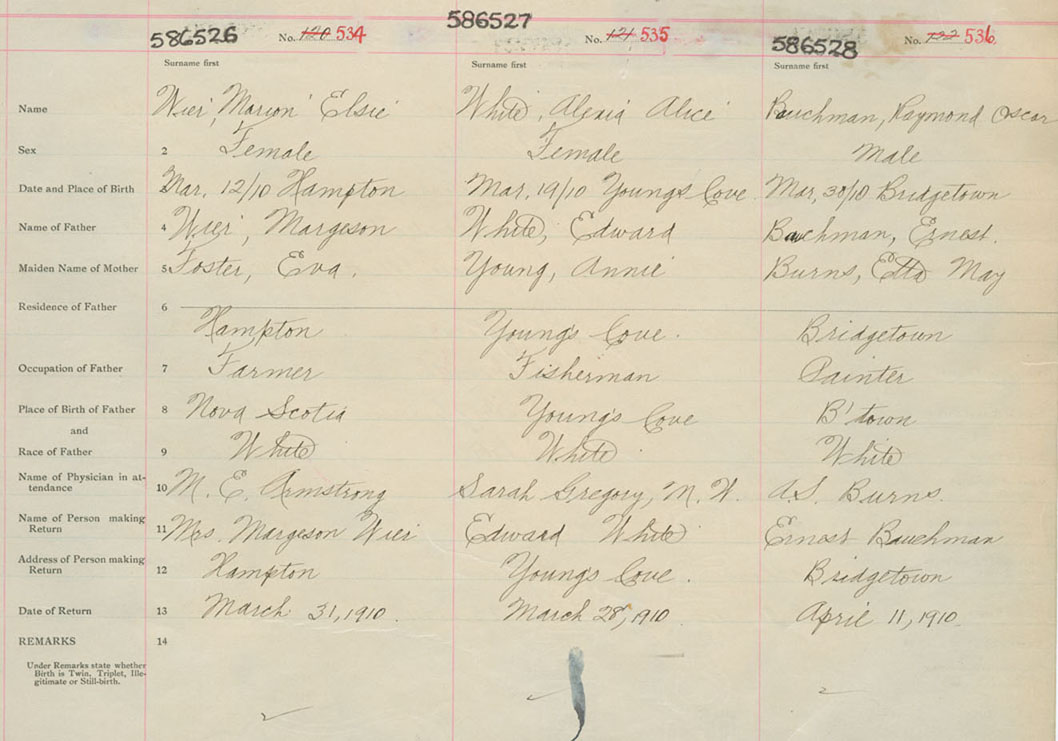 586526 No. 120 534 586527 No. 121 535 586528 No. 122 536
Surname first Surname first Surname first
Name Wier, Marion Elsie White, Alexia Alice Bauchman, Raymond Oscar
Sex 2 Female Female Male
Date and Place of Birth Mar. 12/10 Hampton Mar. 19/10 Young's Cove Mar. 30/10 Bridgetown
Name of Father 4 Wier, Margeson White, Edward Bauchman, Ernest.
Maiden Name of Mother 5 Foster, Eva. Young, Annie Burns, Etta May
Residence of Father 6
Hampton Young's Cove. Bridgetown
Occupation of Father 7 Farmer Fisherman Painter
Place of Birth of Father 8 Nova Scotia Young's Cove B'town
and
Race of Father 9 White White White
Name of Physician in at-
tendance 10 M. E. Armstrong Sarah Gregory, M. W. A. S. Burns.
Name of Person making
Return 11 Mrs. Margeson Wier Edward White Ernest Bauchman
Address of Person making
Return 12 Hampton Young's Cove. Bridgetown
Date of Return 13 March 31, 1910. March 28, 1910 April 11, 1910.
REMARKS 14
Under Remarks state whether
Birth is Twin, Triplet, Ille-
gitimate or Still-birth.